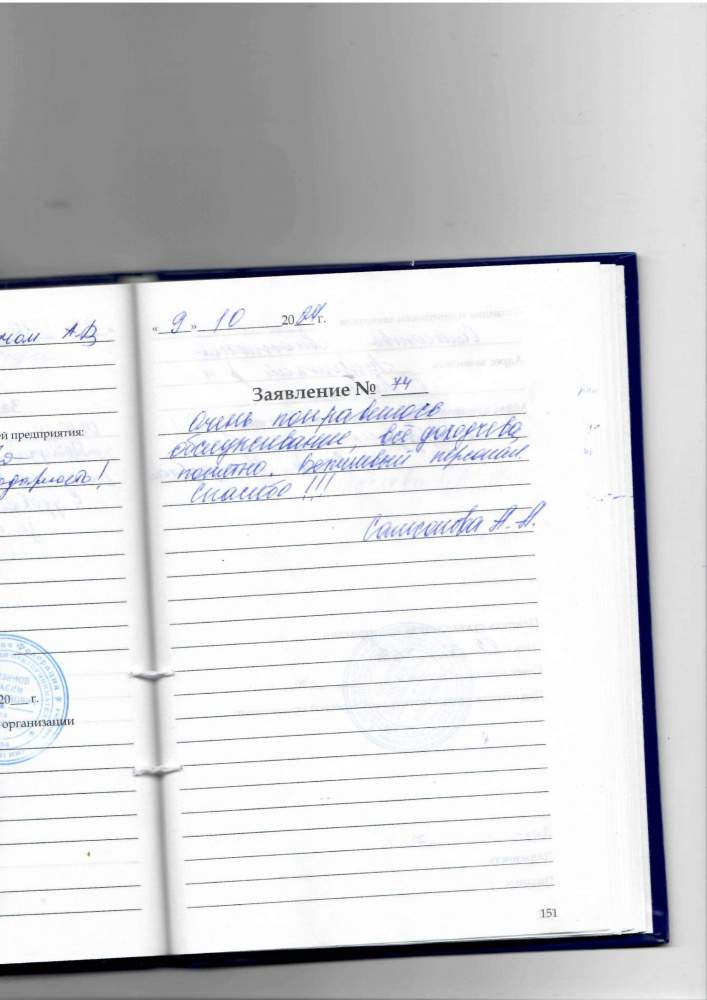 ном А.В
ей предприятия:
одарность!
20___ г.
организации
« 9 » 10 2024 г.
Заявление № 74
Очень понравилось
обслуживание всё доходчево,
понятно. Вежливый персонал.
Спасибо!!!
А. А.
151